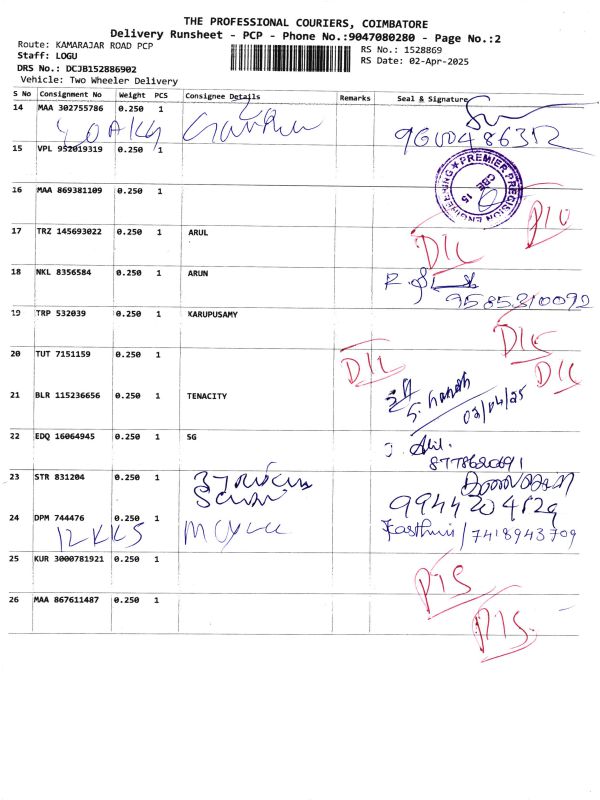 THE PROFESSIONAL COURIERS, COIMBATORE
Delivery Runsheet - PCP - Phone No.:9047080280 - Page No.:2
Route: KAMARAJAR ROAD PCP
RS No.: 1528869
Staff: LOGU
RS Date: 02-Apr-2025
DRS No.: DCJB152886902
Vehicle: Two Wheeler Delivery
S No Consignment No Weight PCS Consignee Details Remarks Seal & Signature
14 MAA 302755786 0.250 1
15 VPL 952019319 0.250 1
PREMIER PRECISION ENGINEERING
CBE 15
16 MAA 869381109 0.250 1
17 TRZ 145693022 0.250 1 ARUL
DIL
18 NKL 8356584 0.250 1 ARUN
9585310092
19 TRP 532039 0.250 1 KARUPUSAMY
20 TUT 7151159 0.250 1
DIL
DIL
21 BLR 115236656 0.250 1 TENACITY
02/04/25
22 EDQ 16064945 0.250 1 SG
23 STR 831204 0.250 1
24 DPM 744476 0.250 1
12KKS
7418943709
25 KUR 3000781921 0.250 1
26 MAA 867611487 0.250 1